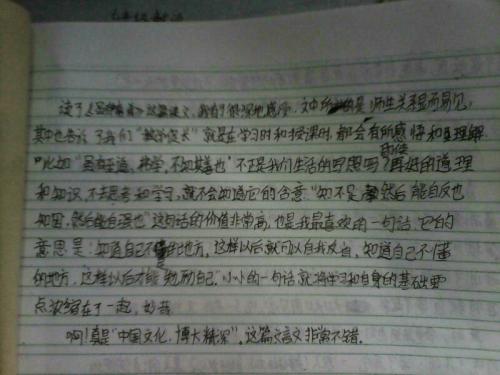 读了《虽有嘉肴》这篇课文,我有了很深地感悟,文中所的是师生关系显而易见,
其中也告诉了我们"教学相长"就是在学习时和授课时,都会有所感悟和理解
的
"比如"虽有至道,弗学,不知其善也"不正是我们生活的写照吗?再好的道理
和知识,不去思考和学习,就不会知道它的含意"知不足,然后能自反也
知困,然后能自强也"这句话的价值非常高,也是我最喜欢的一句话,它的
意思是:知道自己不的地方,这样以后就可以自我反省,知道自己不懂
的地方,这样以后才能勉励自己"小小的一句话就将学习和自身的基础要
点浓缩在了一起,妙哉
啊!真是"中国文化,博大精深",这篇文言文非常不错.